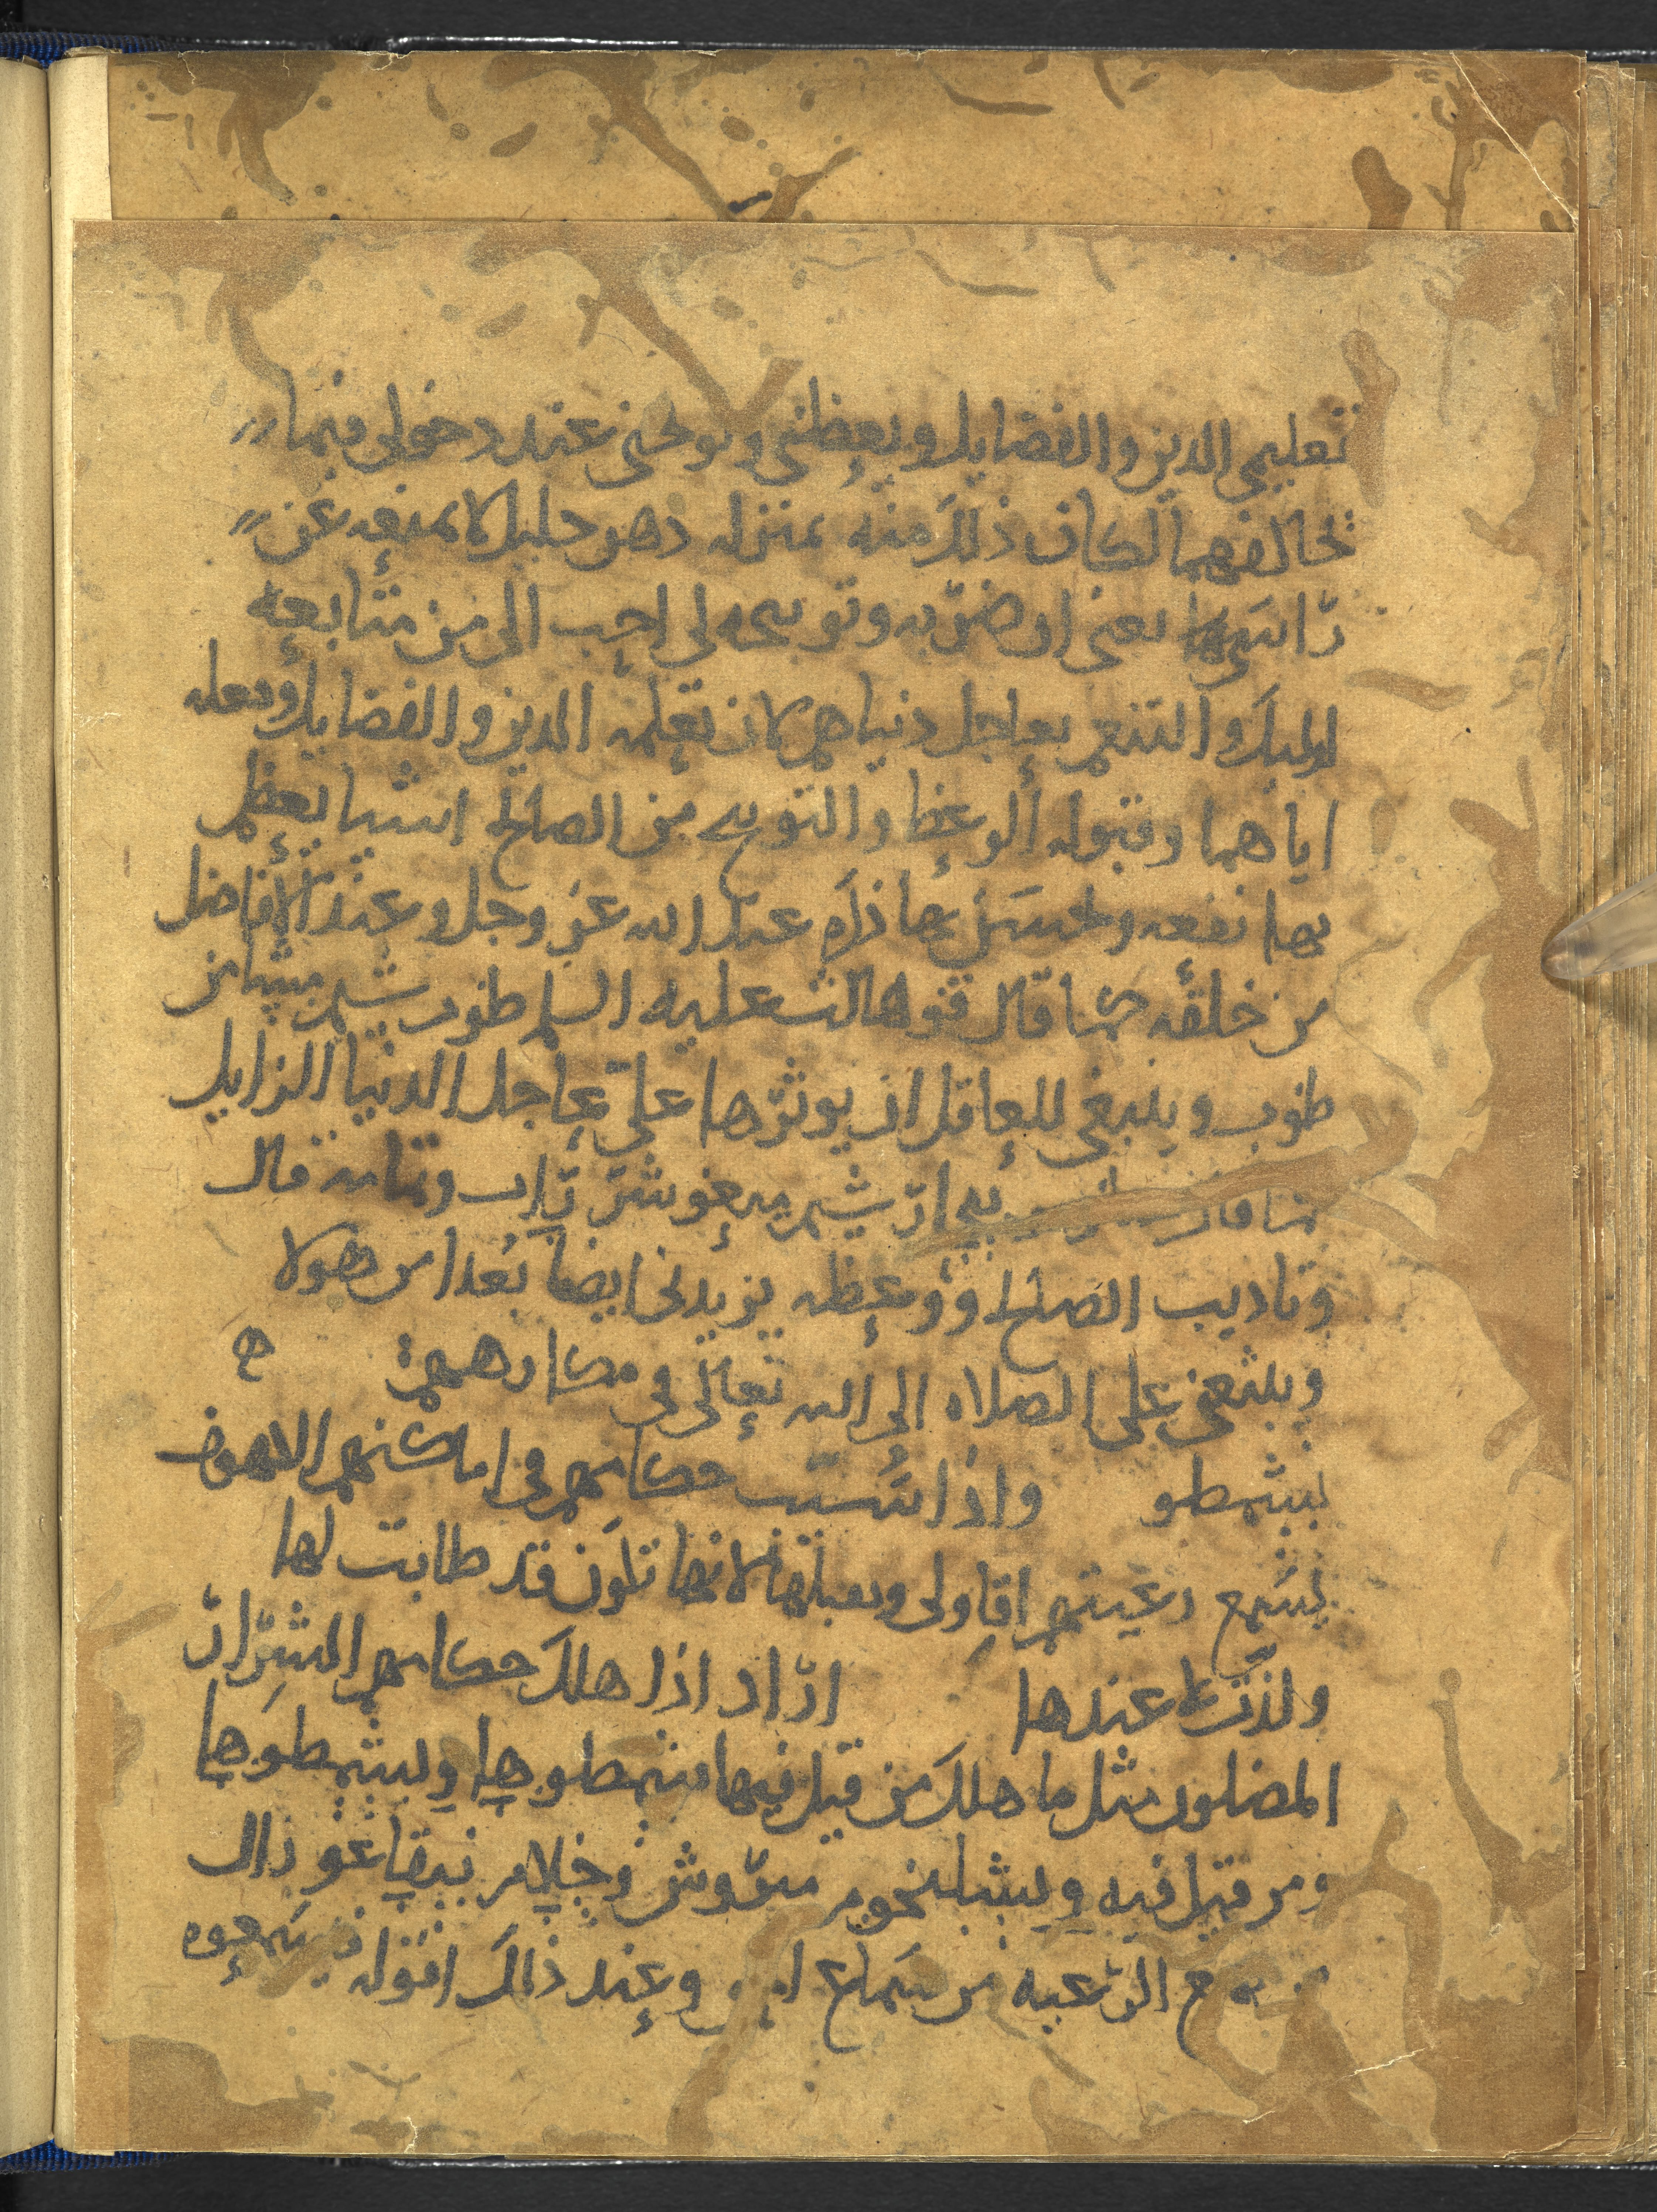 تعليمي الدين والفضايل ويعظني ويوبخني عند دخولي فيما
يخالفهما لكان ذلك منه بمنزله دهن جليل لا يمنعه عن
راسي يعني ان ضربه وتوبيخه لي احب الي من متابعه
اوليك والتنعم بعاجل دنياهم لان تعلمه الدين والفضايل وفعله
اياهما وقبوله الوعظ والتوبيخ من الصالح اشيا يعظم
بها نفعه ويحسن بها ذكره عند الله عز وجل وعند الافاضل
من خلقه كما قال قوهالث عليه السلم طوب شيم مشامن
طوب وينبغي للعاقل ان يوثرها علي عاجل الدنيا الزايل
كما قال نبحار شيم ميعوشر راب وتمامه قال
وتاديب الصالح ووعظه يزيدني ايضا بعدا من هولا
ويبعثني على الصلاه الى الله تعالى في مكارههم
نيشمطو واذا تسيبت حكامهم في اماكنهم الاهوف
يسمع رعيتهم اقاولي ويقبلها لانها تكون قد طابت لها
ولذت عندها اراد اذا هلك حكامهم الشرار
المضلون مثل ما هلك من قيل فيها فشمطوها ويشمطوها
ومن قيل فيه ويشيلخوم مروش وجلام نبقاعو زال
الرعيه من سماع وعند ذلك اقواله فيسمعوه